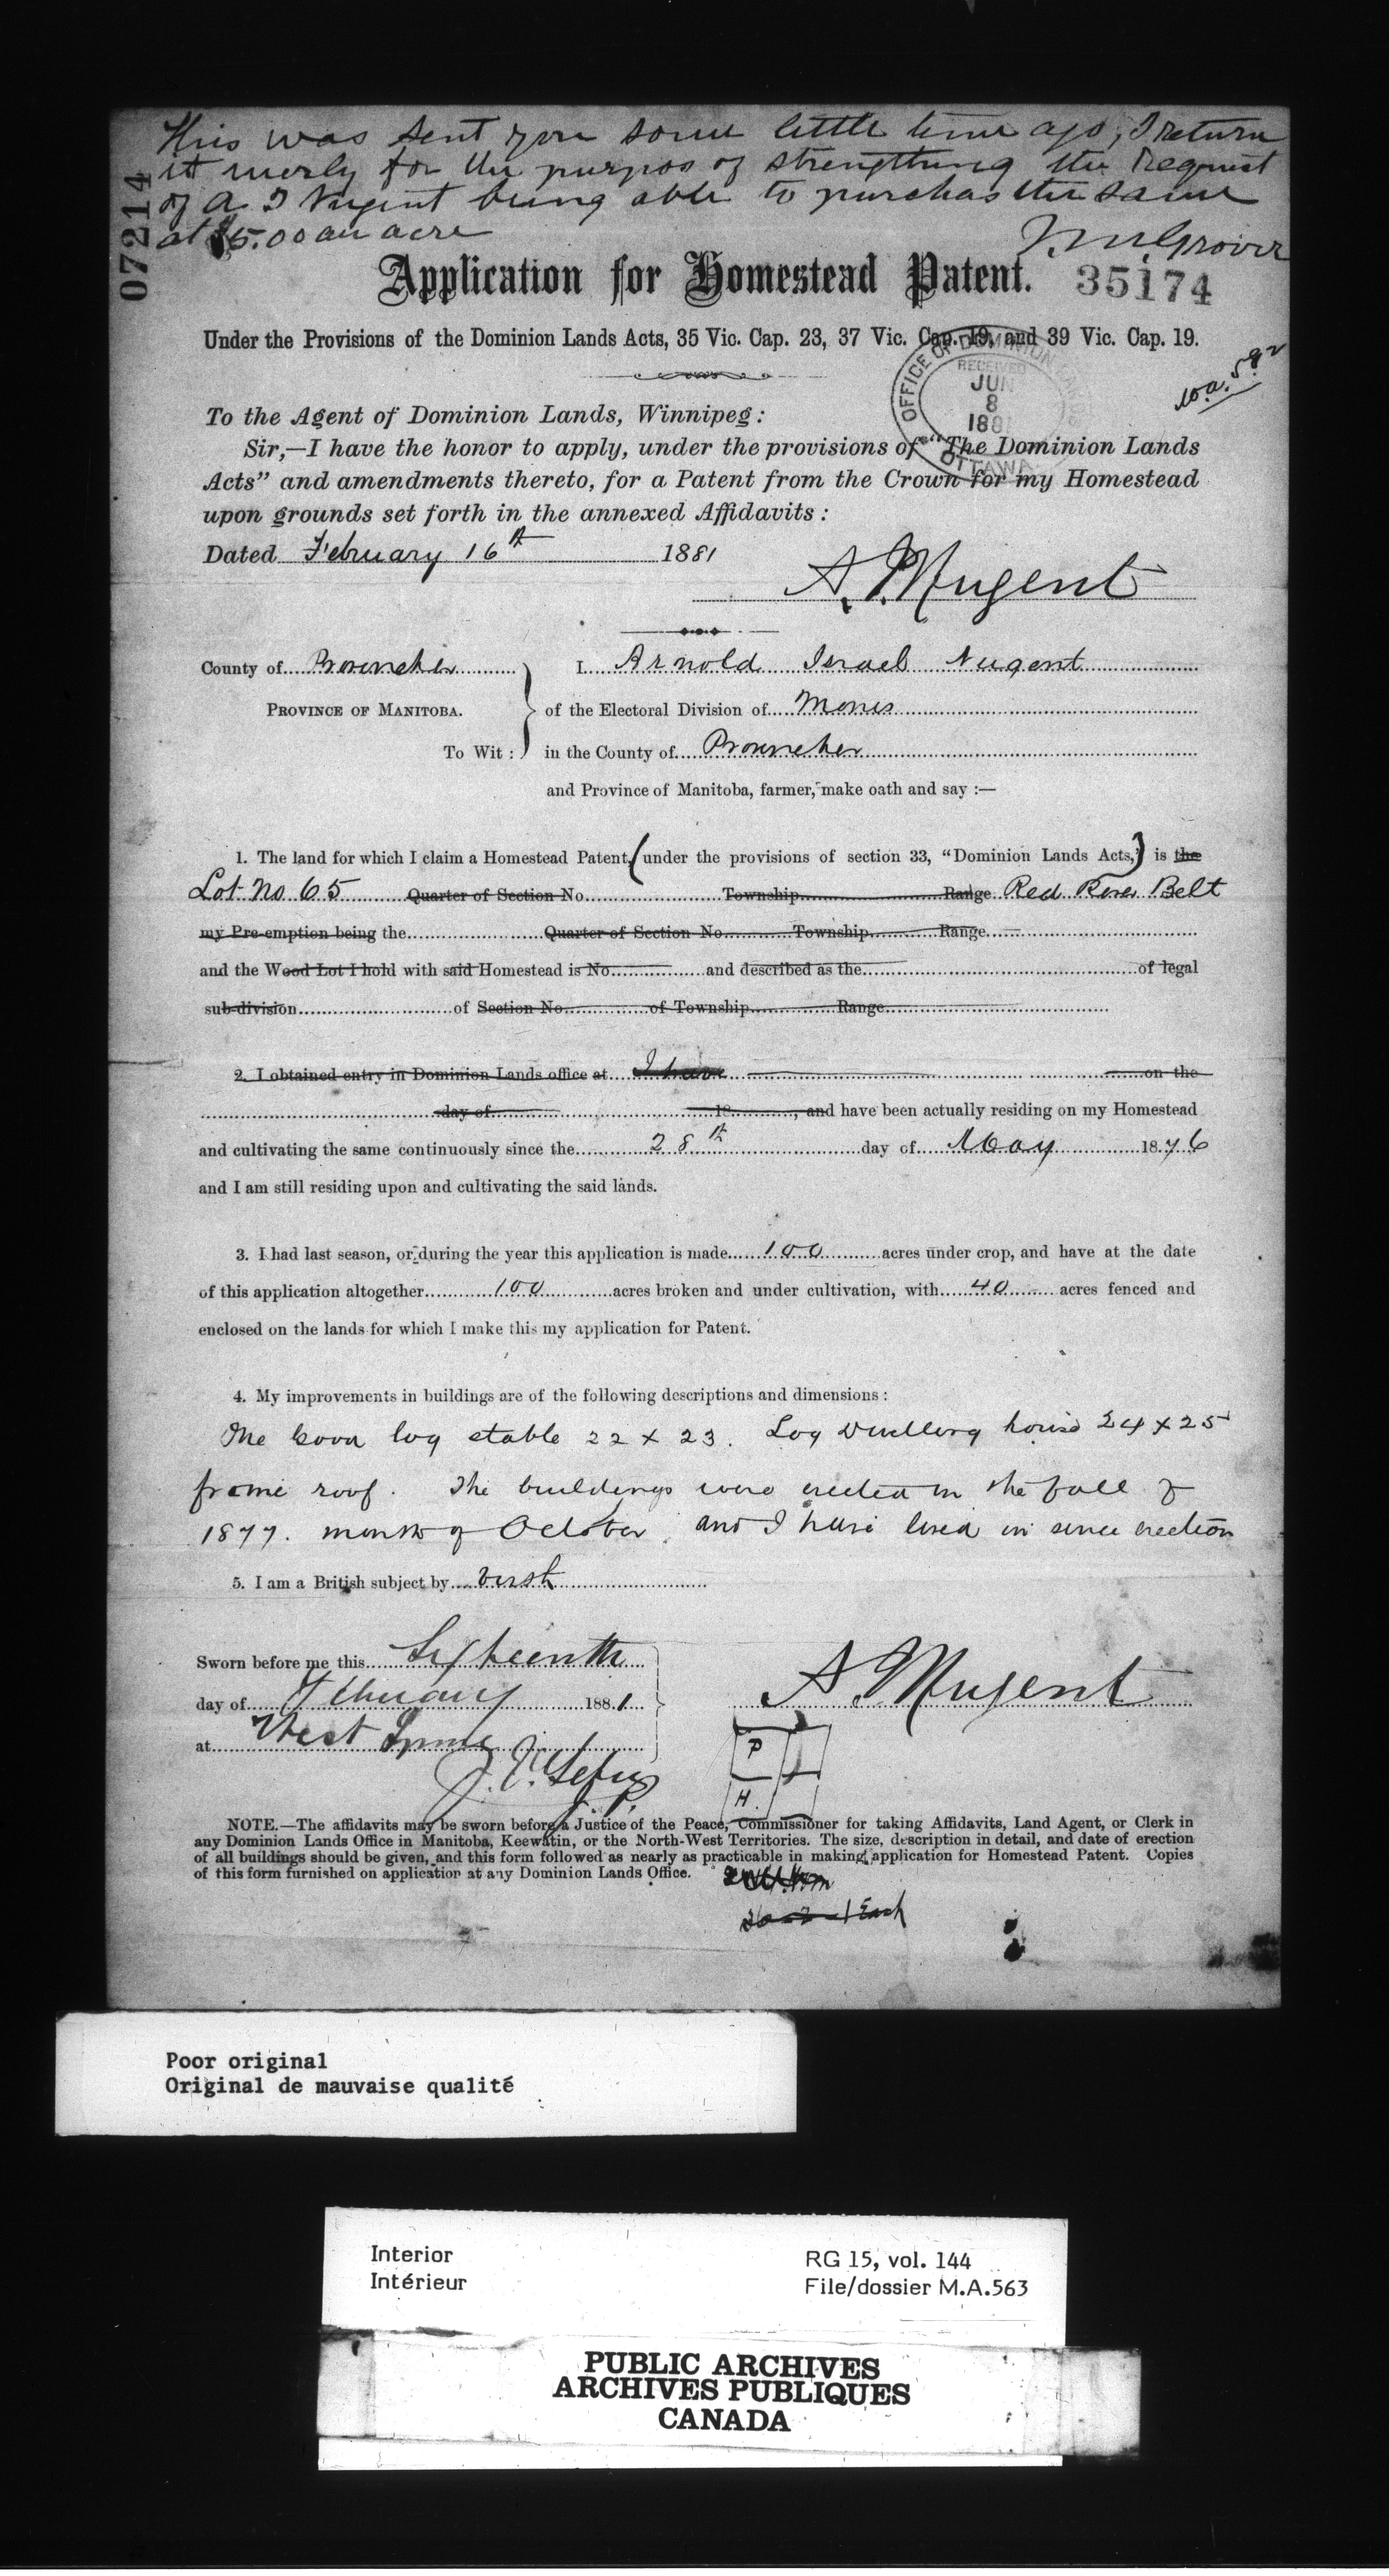 This was sent you some little time ago, I return
it merly for the purpos of strengthing the Request
of A I Nugent being able to purchas the same
at $5.00 an acre
07214
Application for Homestead Patent. 35174
Under the Provisions of the Dominion Lands Acts, 35 Vic. Cap. 23, 37 Vic. Cap. 19, and 39 Vic. Cap. 19.
OFFICE OF DOMINION LANDS
RECEIVED
JUN
8
188
OTTAWA
To the Agent of Dominion Lands, Winnipeg:
Sir,—I have the honor to apply, under the provisions of "The Dominion Lands
Acts" and amendments thereto, for a Patent from the Crown for my Homestead
upon grounds set forth in the annexed Affidavits:
Dated February 16th 1881
A. I. Nugent
County of Provencher I Arnold Israel Nugent
PROVINCE OF MANITOBA. of the Electoral Division of Morris
To Wit: in the County of Provencher
and Province of Manitoba, farmer, make oath and say:—
1. The land for which I claim a Homestead Patent, (under the provisions of section 33, "Dominion Lands Acts,") is the
Lot No 65 Quarter of Section No. Township Range Red River Belt
my Pre-emption being the Quarter of Section No. Township Range
and the Wood Lot I hold with said Homestead is No. and described as the of legal
sub-division of Section No. of Township Range
2. I obtained entry in Dominion Lands office at I have on the
day of 18 , and have been actually residing on my Homestead
and cultivating the same continuously since the 28th day of May 1876
and I am still residing upon and cultivating the said lands.
3. I had last season, or during the year this application is made 100 acres under crop, and have at the date
of this application altogether 100 acres broken and under cultivation, with 40 acres fenced and
enclosed on the lands for which I make this my application for Patent.
4. My improvements in buildings are of the following descriptions and dimensions:
One Good log stable 22 x 23. Log Dwelling house 24 x 25
frame roof. The buildings were erected in the fall of
1877. month of October and I have lived in since erection
5. I am a British subject by birth
Sworn before me this Sixteenth
day of February 1881
A. I. Nugent
at West Lynne
J. P.
P
H.
NOTE.—The affidavits may be sworn before a Justice of the Peace, Commissioner for taking Affidavits, Land Agent, or Clerk in
any Dominion Lands Office in Manitoba, Keewatin, or the North-West Territories. The size, description in detail, and date of erection
of all buildings should be given, and this form followed as nearly as practicable in making application for Homestead Patent. Copies
of this form furnished on application at any Dominion Lands Office.
Poor original
Original de mauvaise qualité
Interior
Intérieur
RG 15, vol. 144
File/dossier M.A.563
PUBLIC ARCHIVES
ARCHIVES PUBLIQUES
CANADA